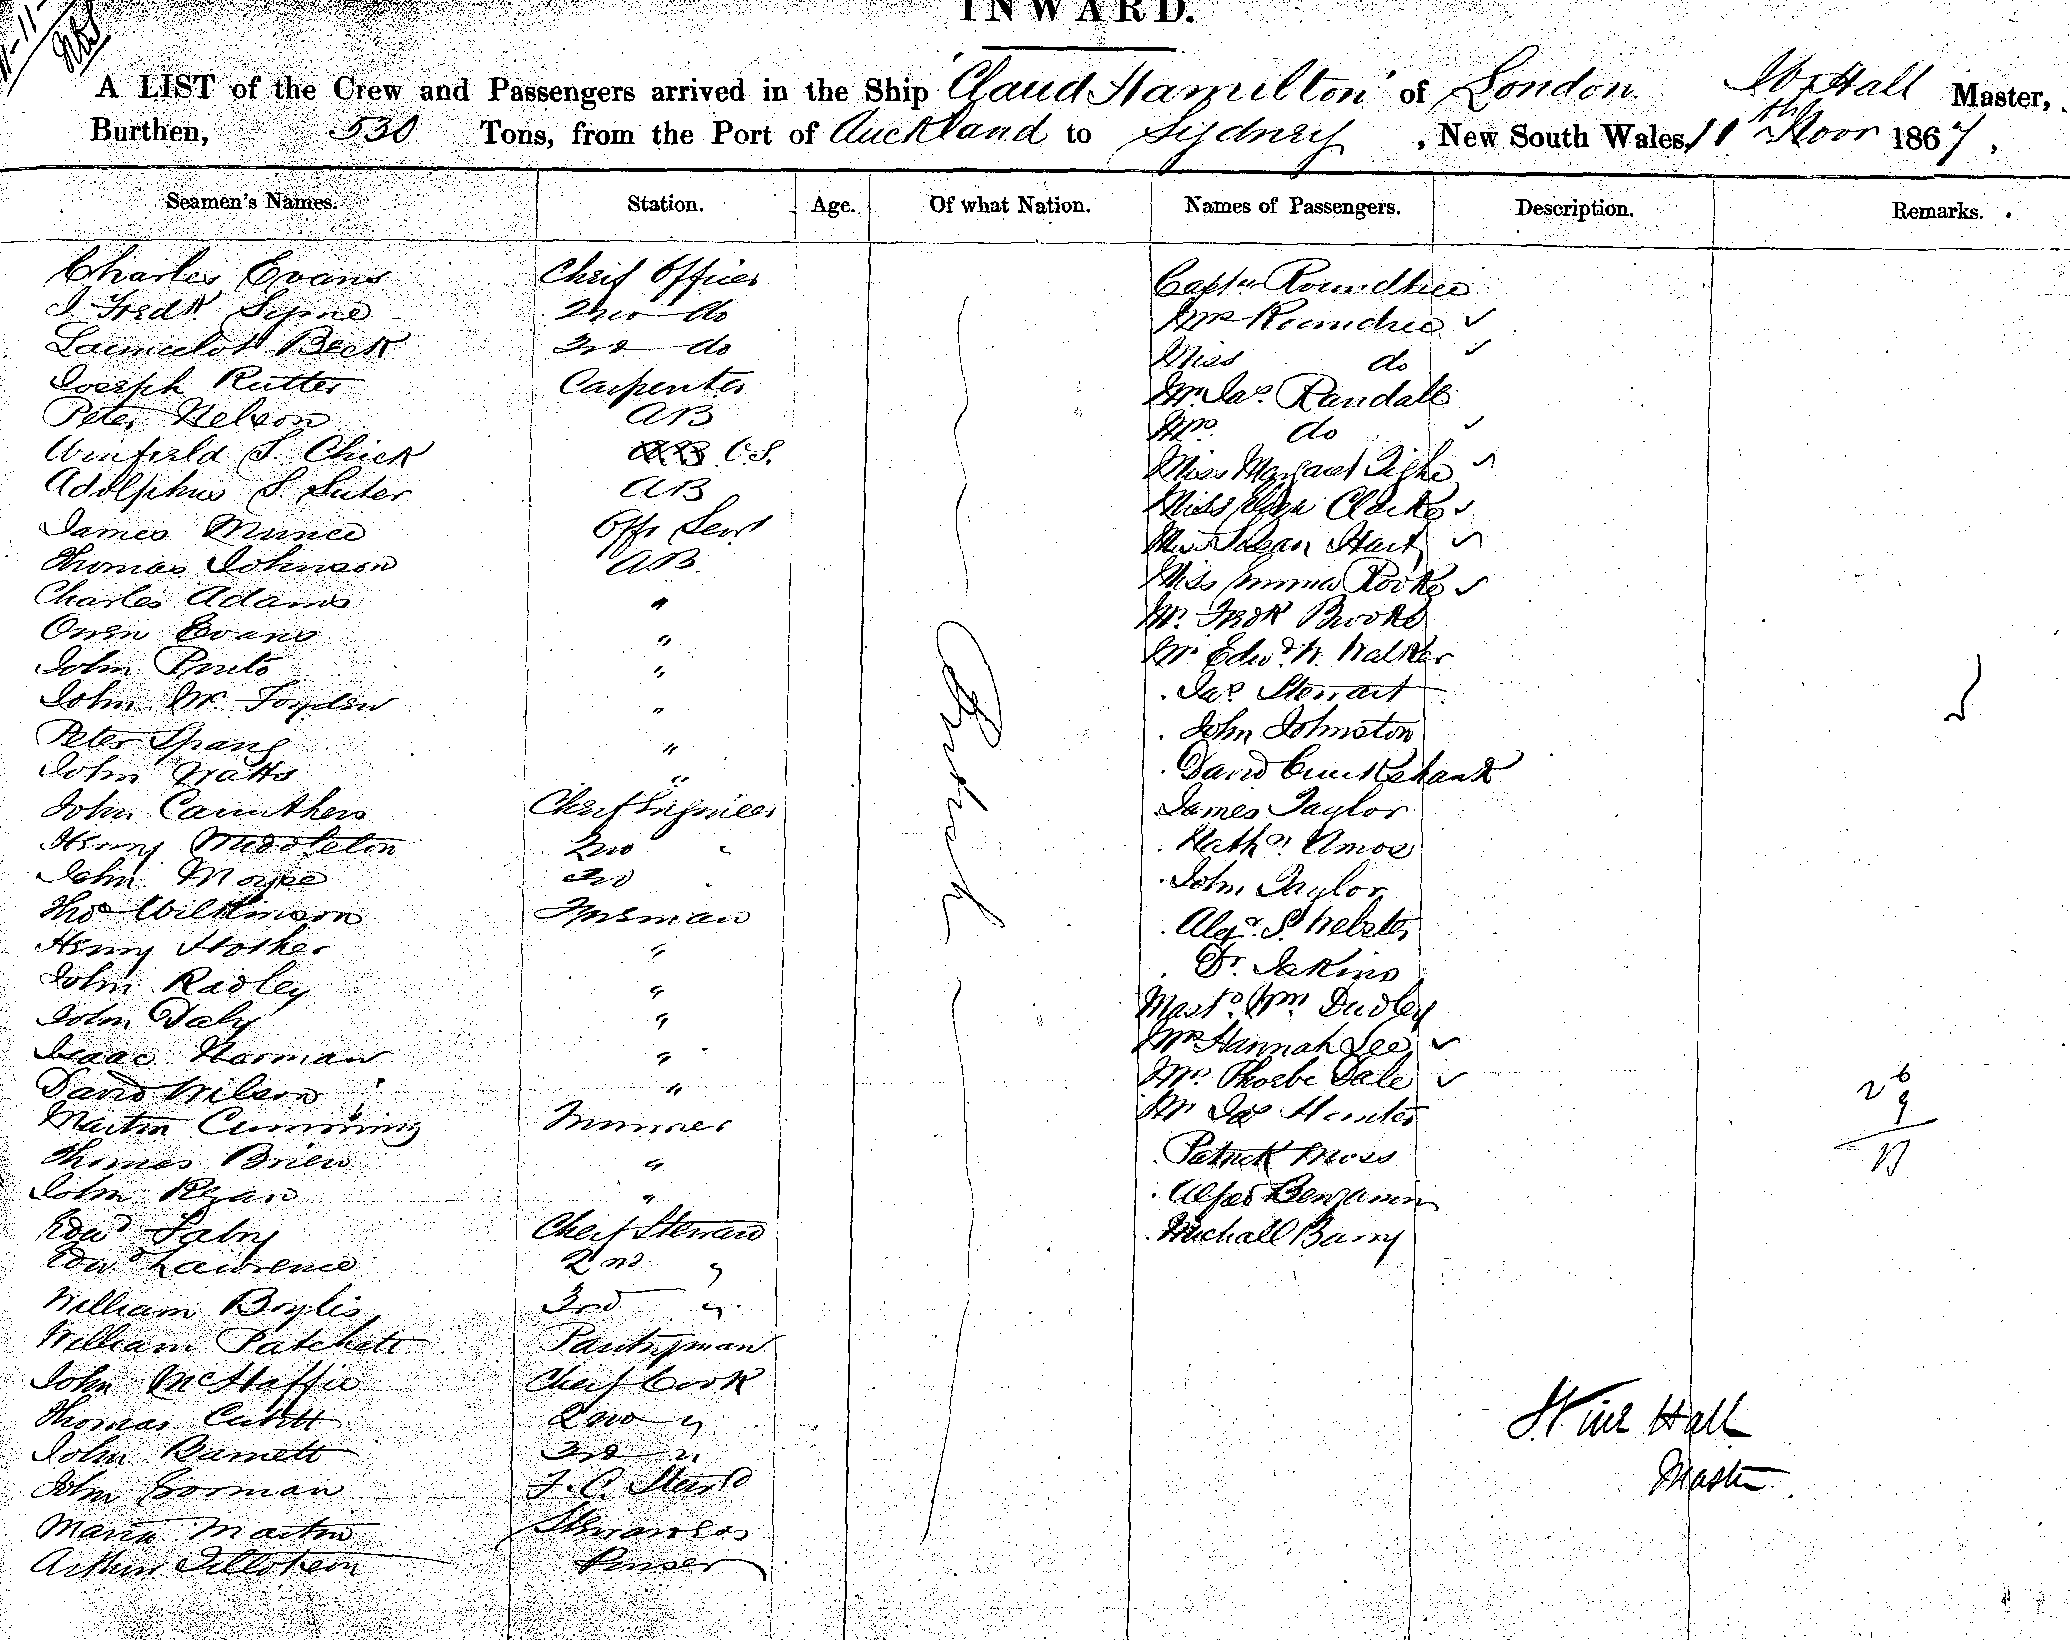 INWARD.
A LIST of the Crew and Passengers arrived in the Ship "Claud Hamilton" of London Hall Master,
Burthen, 530 Tons, from the Port of Auckland to Sydney, New South Wales, 11th Novr 1867.
Seamen's Names. Station. Age. Of what Nation. Names of Passengers. Description. Remarks.
Charles Evans Chief Officer Captn Roundtree
Fredk Syme 2nd do Mrs Roundtree
Beck 3rd do Miss do
Joseph Rutter Carpenter Mr Jas. Randall
Peter Nelson AB Mrs do
Winfield S. Chick O.S. Miss Margaret Tighe
Adolphus S. Suter AB Miss Eliza Clarke
James Munce Offr Servt Susan Hart
Thomas Johnson AB Miss Emma Rooke
Charles Adams " Mr Fredk Brooke
Owen Evans " Mr Edwd W. Walker
John " Jas Stewart
John " John Johnston
Peter Spang " David Cruikshank
John Watts " James Taylor
John Caruthers Chief Engineer Nathl Amos
Henry Middleton 2nd " John Taylor
John Moyse 3rd " Alexr. S. Webster
Thos Wilkinson Fireman Dr. Jakins
Henry " Mastr Wm Dudley
John Radley " Mrs Hannah Lee
John Daly " Mrs Phoebe Dale
Isaac Harman " Mr Jas Hunter
David Wilson " Patrick Moss
Martin Cumming Trimmer Alfred Benjamin
Thomas Brien " Michall Barry
John Ryan "
Edwd Chief Steward
Edwd Lawrence 2nd "
William 3rd "
William Patchett Pantryman
John McHaffie Chief Cook
Thomas Cubitt 2nd "
John Barnett 3rd "
John Gorman F.C. Stewd
Maria Martin Stewardess
Arthur Tillotson Purser
British
26
9
17
Hall
Master